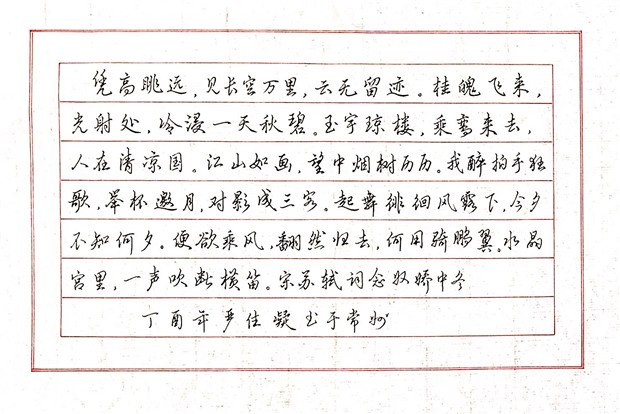 凭高眺远，见长空万里，云无留迹。桂魄飞来，
光射处，冷浸一天秋碧。玉宇琼楼，乘鸾来去，
人在清凉国。江山如画，望中烟树历历。我醉拍手狂
歌，举杯邀月，对影成三客。起舞徘徊风露下，今夕
不知何夕。便欲乘风，翻然归去，何用骑鹏翼。水晶
宫里，一声吹断横笛。宋苏轼词念奴娇中冬
丁酉年严佳凝书于常州